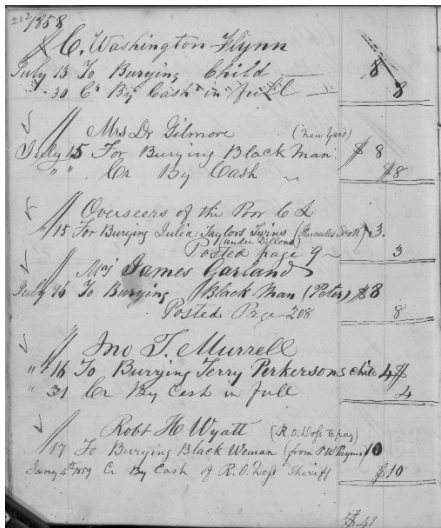 202
1858
C. Washington Flynn
July 13 To Burying Child 8
" 30 Cr By Cash in full 8
Mrs Dr Gilmore (New Yard)
July 15 For Burying Black Man $8
" " Cr By Cash $8
Overseers of the Poor C L
" 15 For Burying Julia Taylors Twins (Hercules Scott) 3.
(Under Dillond)
Posted page 9 3
Maj James Garland
July 16 To Burying Black Man (Peter) $8
Posted Page 208 8
Jno T. Murrell
" 16 To Burying Terry Perkersons Child 4$
" 31 Cr By Cash in full 4
Robt H Wyatt (R.O. Doss to pay)
" 17 To Burying Black Woman (from P W Payne) 10
Jany 4th 1859 Cr By Cash of R.O. Doss Sheriff $10
$41